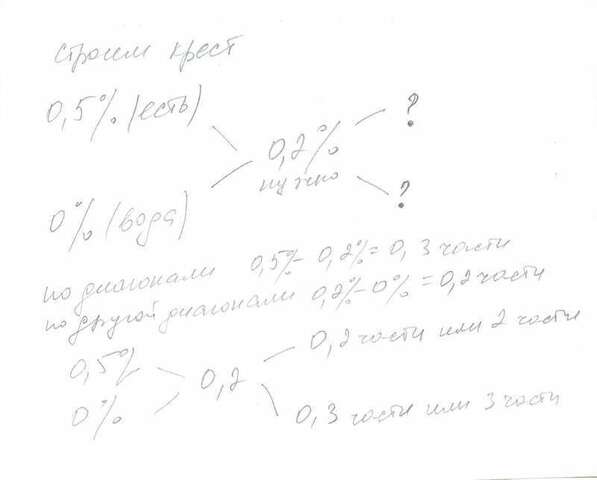 строим крест
0,5% (есть)
?
0,2%
нужно
?
0% (вода)
по диагонали 0,5% - 0,2% = 0,3 части
по другой диагонали 0,2% - 0% = 0,2 части
0,5%
0,2 части или 2 части
0,2
0%
0,3 части или 3 части